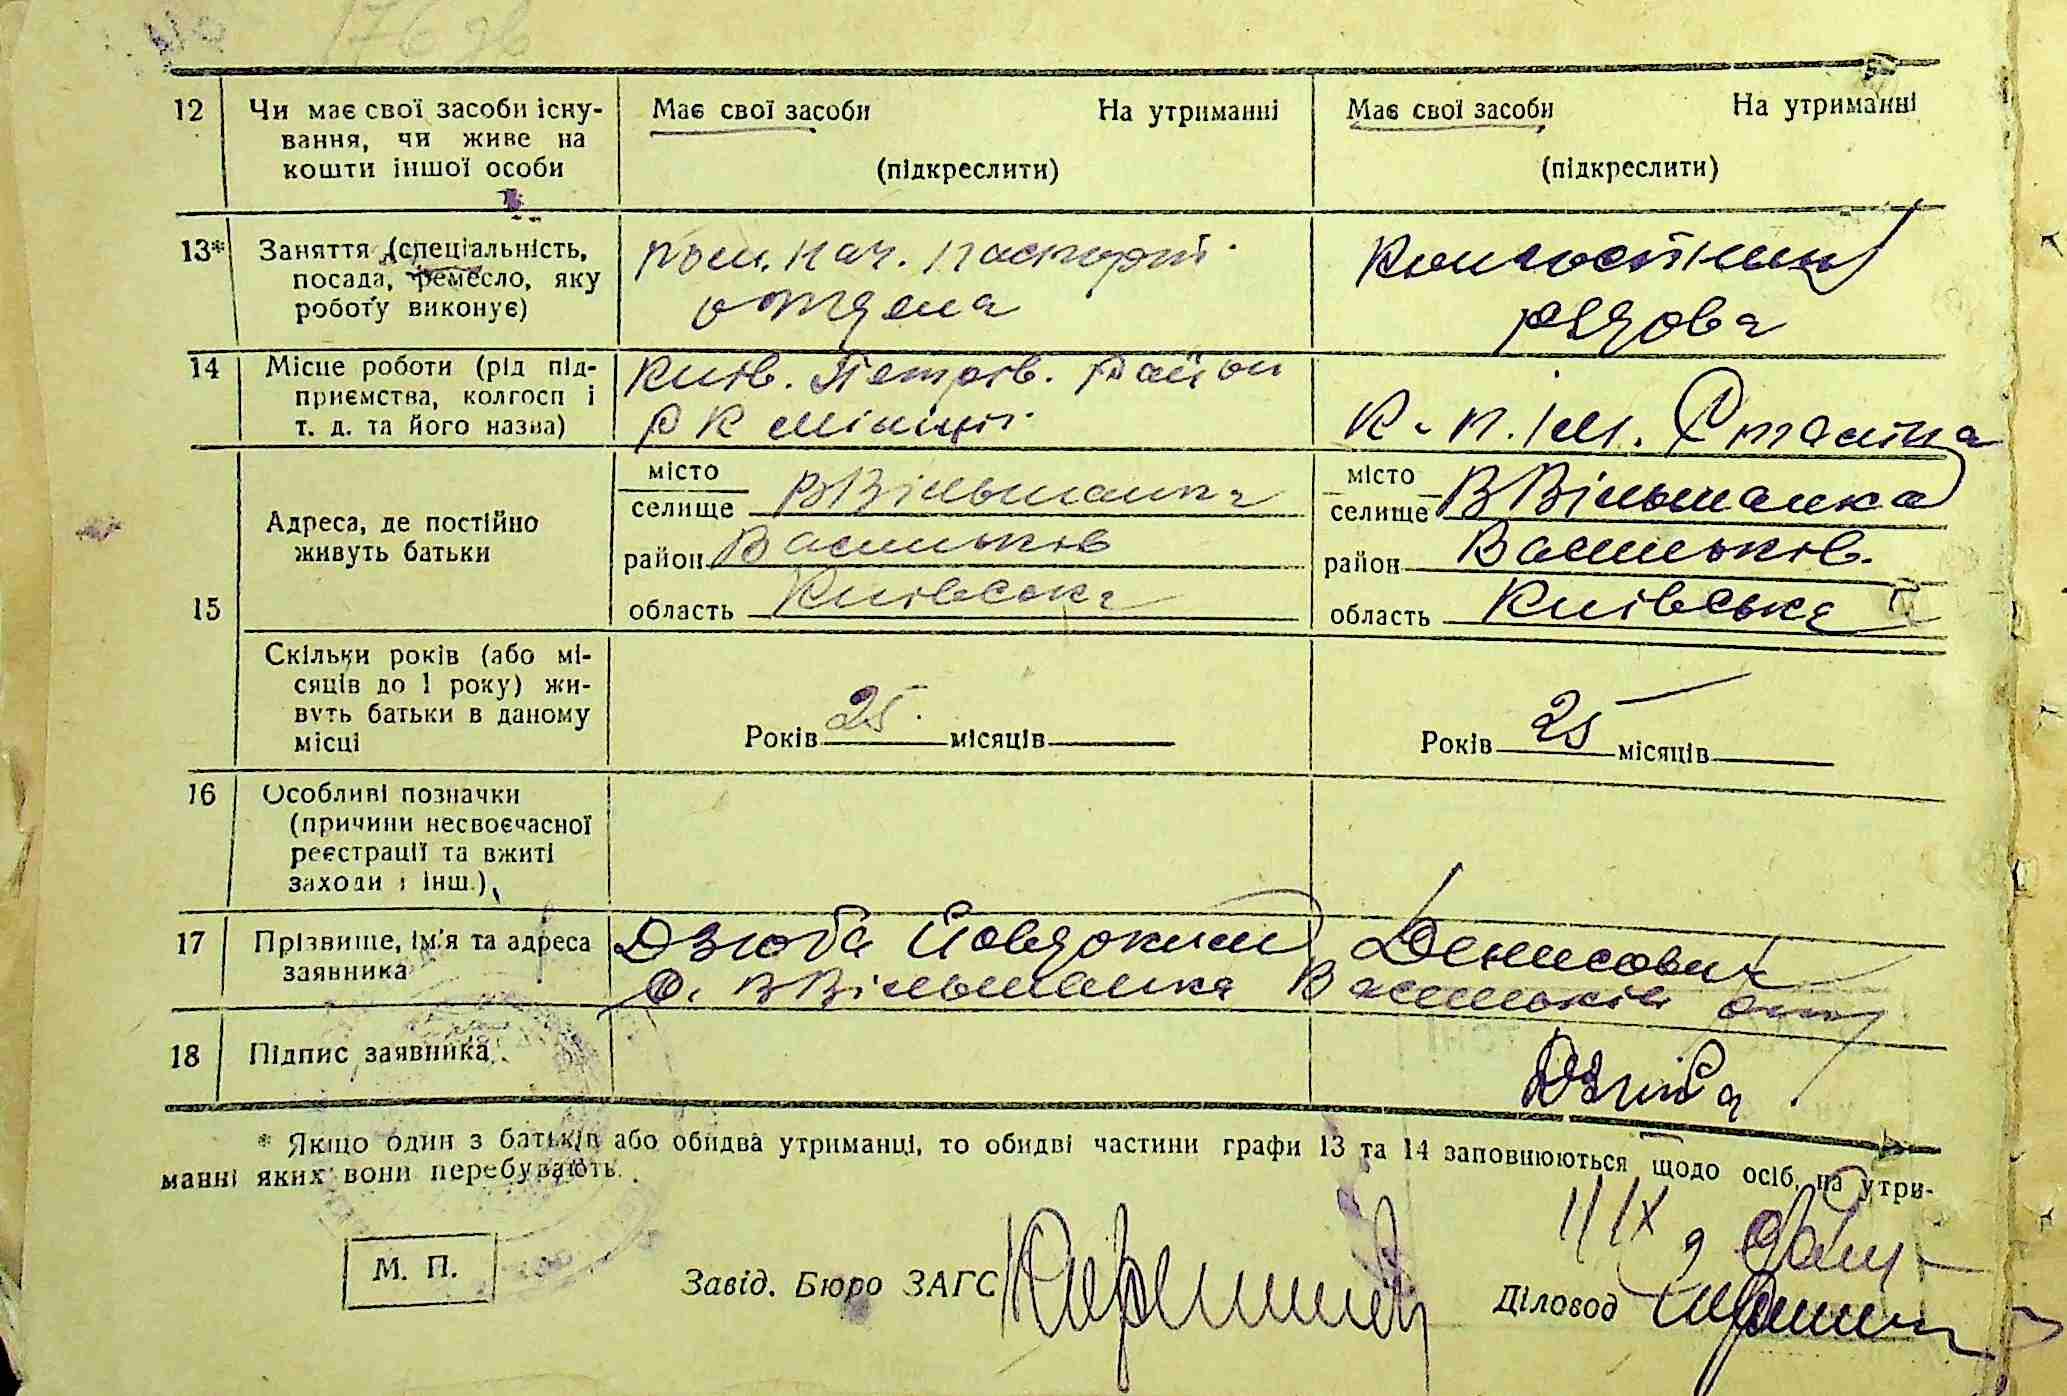 12 Чи має свої засоби існу- Має свої засоби На утриманні Має свої засоби На утриманні
вання, чи живе на
кошти іншої особи (підкреслити) (підкреслити)
13* Заняття (спеціальність, пом. нач. паспорт. Колгоспниця
посада, ремесло, яку
роботу виконує) отдела рядова
14 Місце роботи (рід під- Київ. Петрів. район
приємства, колгосп і РК міліції к-п. ім. Сталіна
т. д. та його назва)
15 Адреса, де постійно живуть батьки
місто селище ВВільшанка місто селище ВВільшанка
район Васильків район Васильків.
область Київська область Київська
Скільки років (або мі-
сяців до 1 року) жи-
вуть батьки в даному
місці Років 25 місяців Років 25 місяців
16 Особливі позначки
(причини несвоєчасної
реєстрації та вжиті
заходи і інш.)
17 Прізвище, ім'я та адреса Дзюба Йовдоким Денисович
заявника с. ВВільшанка Васильків
18 Підпис заявника Дзюба
* Якщо один з батьків або обидва утриманці, то обидві частини графи 13 та 14 заповнюються щодо осіб, на утри-
манні яких вони перебувають.
М. П. Завід. Бюро ЗАГС Діловод